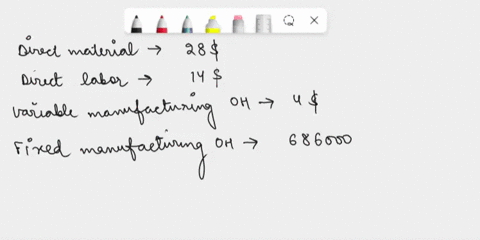 Direct material → 28$
Direct labor → 14$
Variable manufacturing OH → 4$
Fixed manufacturing OH → 686000